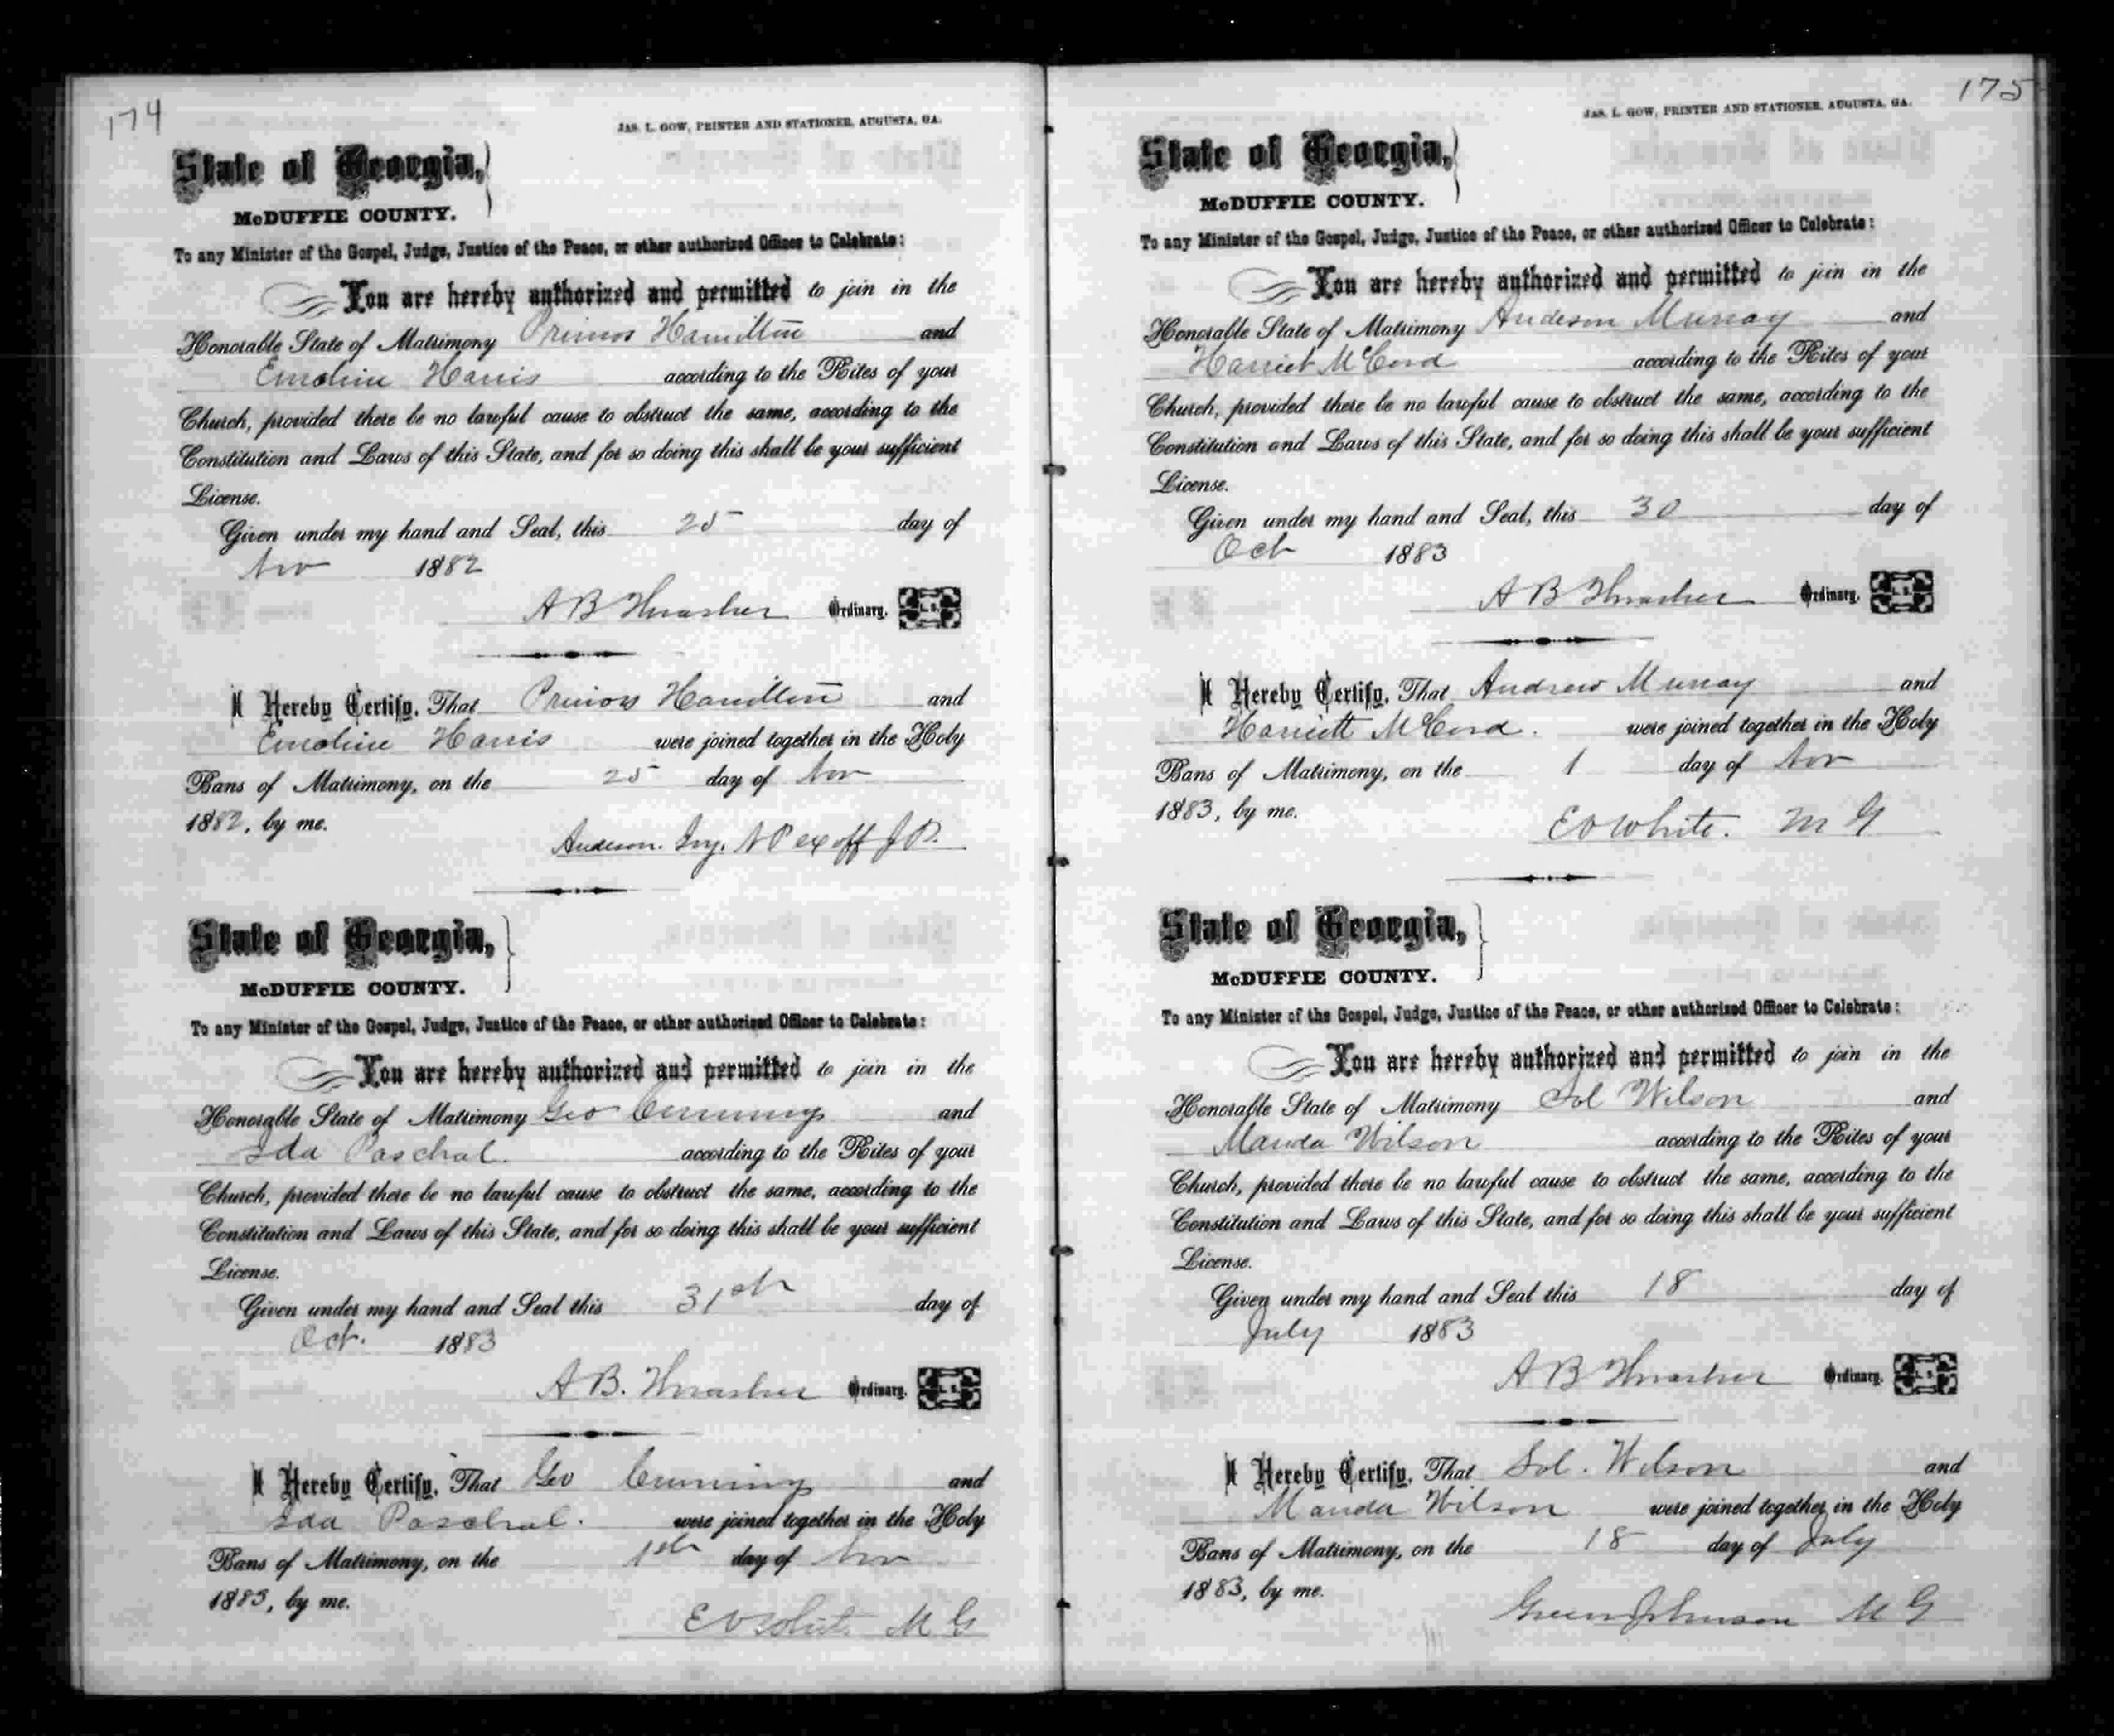 174
JAS. L. GOW, PRINTER AND STATIONER, AUGUSTA, GA.
State of Georgia,
McDUFFIE COUNTY.
To any Minister of the Gospel, Judge, Justice of the Peace, or other authorized Officer to Celebrate:
You are hereby authorized and permitted to join in the
Honorable State of Matrimony Primos Hamilton and
Emoline Harris according to the Rites of your
Church, provided there be no lawful cause to obstruct the same, according to the
Constitution and Laws of this State, and for so doing this shall be your sufficient
License.
Given under my hand and Seal, this 25 day of
Nov 1882
A B Thrasher Ordinary. L. S.
I Hereby Certify, That Primos Hamilton and
Emoline Harris were joined together in the Holy
Bans of Matrimony, on the 25 day of Nov
1882, by me.
Anderson Ivy. N P ex off J P.
State of Georgia,
McDUFFIE COUNTY.
To any Minister of the Gospel, Judge, Justice of the Peace, or other authorized Officer to Celebrate:
You are hereby authorized and permitted to join in the
Honorable State of Matrimony Geo Cummings and
Ida Paschal. according to the Rites of your
Church, provided there be no lawful cause to obstruct the same, according to the
Constitution and Laws of this State, and for so doing this shall be your sufficient
License.
Given under my hand and Seal this 31st day of
Oct. 1883
A B. Thrasher Ordinary. L. S.
I Hereby Certify, That Geo Cummings and
Ida Paschal. were joined together in the Holy
Bans of Matrimony, on the 1st day of Nov
1883, by me.
E V White M G
175
JAS. L. GOW, PRINTER AND STATIONER, AUGUSTA, GA.
State of Georgia,
McDUFFIE COUNTY.
To any Minister of the Gospel, Judge, Justice of the Peace, or other authorized Officer to Celebrate:
You are hereby authorized and permitted to join in the
Honorable State of Matrimony Anderson Murray and
Harriet McCord according to the Rites of your
Church, provided there be no lawful cause to obstruct the same, according to the
Constitution and Laws of this State, and for so doing this shall be your sufficient
License.
Given under my hand and Seal, this 30 day of
Oct 1883
A B Thrasher Ordinary. L. S.
I Hereby Certify, That Andrew Murray and
Harriett McCord. were joined together in the Holy
Bans of Matrimony, on the 1 day of Nov
1883, by me.
E V White. M G
State of Georgia,
McDUFFIE COUNTY.
To any Minister of the Gospel, Judge, Justice of the Peace, or other authorized Officer to Celebrate:
You are hereby authorized and permitted to join in the
Honorable State of Matrimony Sol Wilson and
Manda Wilson according to the Rites of your
Church, provided there be no lawful cause to obstruct the same, according to the
Constitution and Laws of this State, and for so doing this shall be your sufficient
License.
Given under my hand and Seal this 18 day of
July 1883
A B Thrasher Ordinary. L. S.
I Hereby Certify, That Sol. Wilson and
Manda Wilson were joined together in the Holy
Bans of Matrimony, on the 18 day of July
1883, by me.
Green Johnson M G